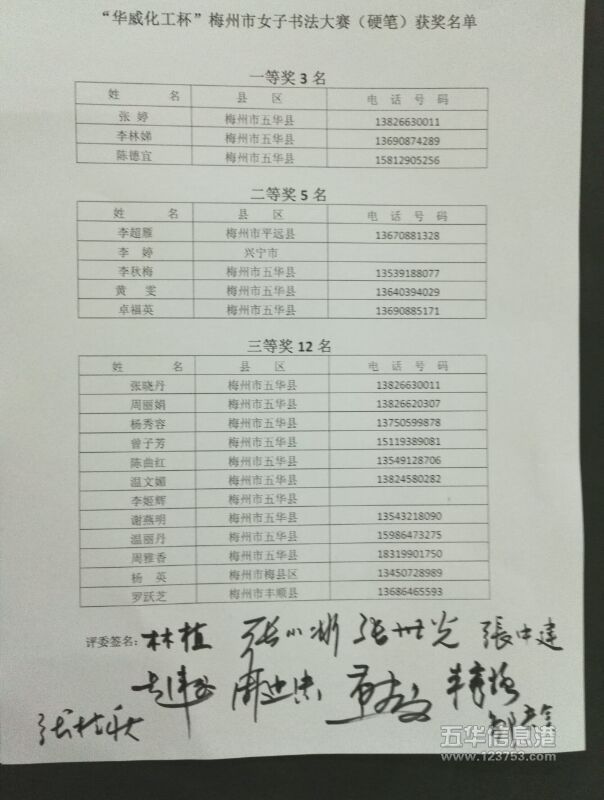 “华威化工杯”梅州市女子书法大赛（硬笔）获奖名单
一等奖 3 名
姓 名 县 区 电 话 号 码
张 婷 梅州市五华县 13826630011
李林娣 梅州市五华县 13690874289
陈德宜 梅州市五华县 15812905256
二等奖 5 名
姓 名 县 区 电 话 号 码
李超雁 梅州市平远县 13670881328
李 婷 兴宁市
李秋梅 梅州市五华县 13539188077
黄 雯 梅州市五华县 13640394029
卓福英 梅州市五华县 13690885171
三等奖 12 名
姓 名 县 区 电 话 号 码
张晓丹 梅州市五华县 13826630011
周丽娟 梅州市五华县 13826620307
杨秀容 梅州市五华县 13750599878
曾子芳 梅州市五华县 15119389081
陈曲红 梅州市五华县 13549128706
温文媚 梅州市五华县 13824580282
李姬辉 梅州市五华县
谢燕明 梅州市五华县 13543218090
温丽丹 梅州市五华县 15986473275
周雅香 梅州市五华县 18319901750
杨 英 梅州市梅县区 13450728989
罗跃芝 梅州市丰顺县 13686465593
评委签名: 林植 張中建
五华信息港
www.123753.com